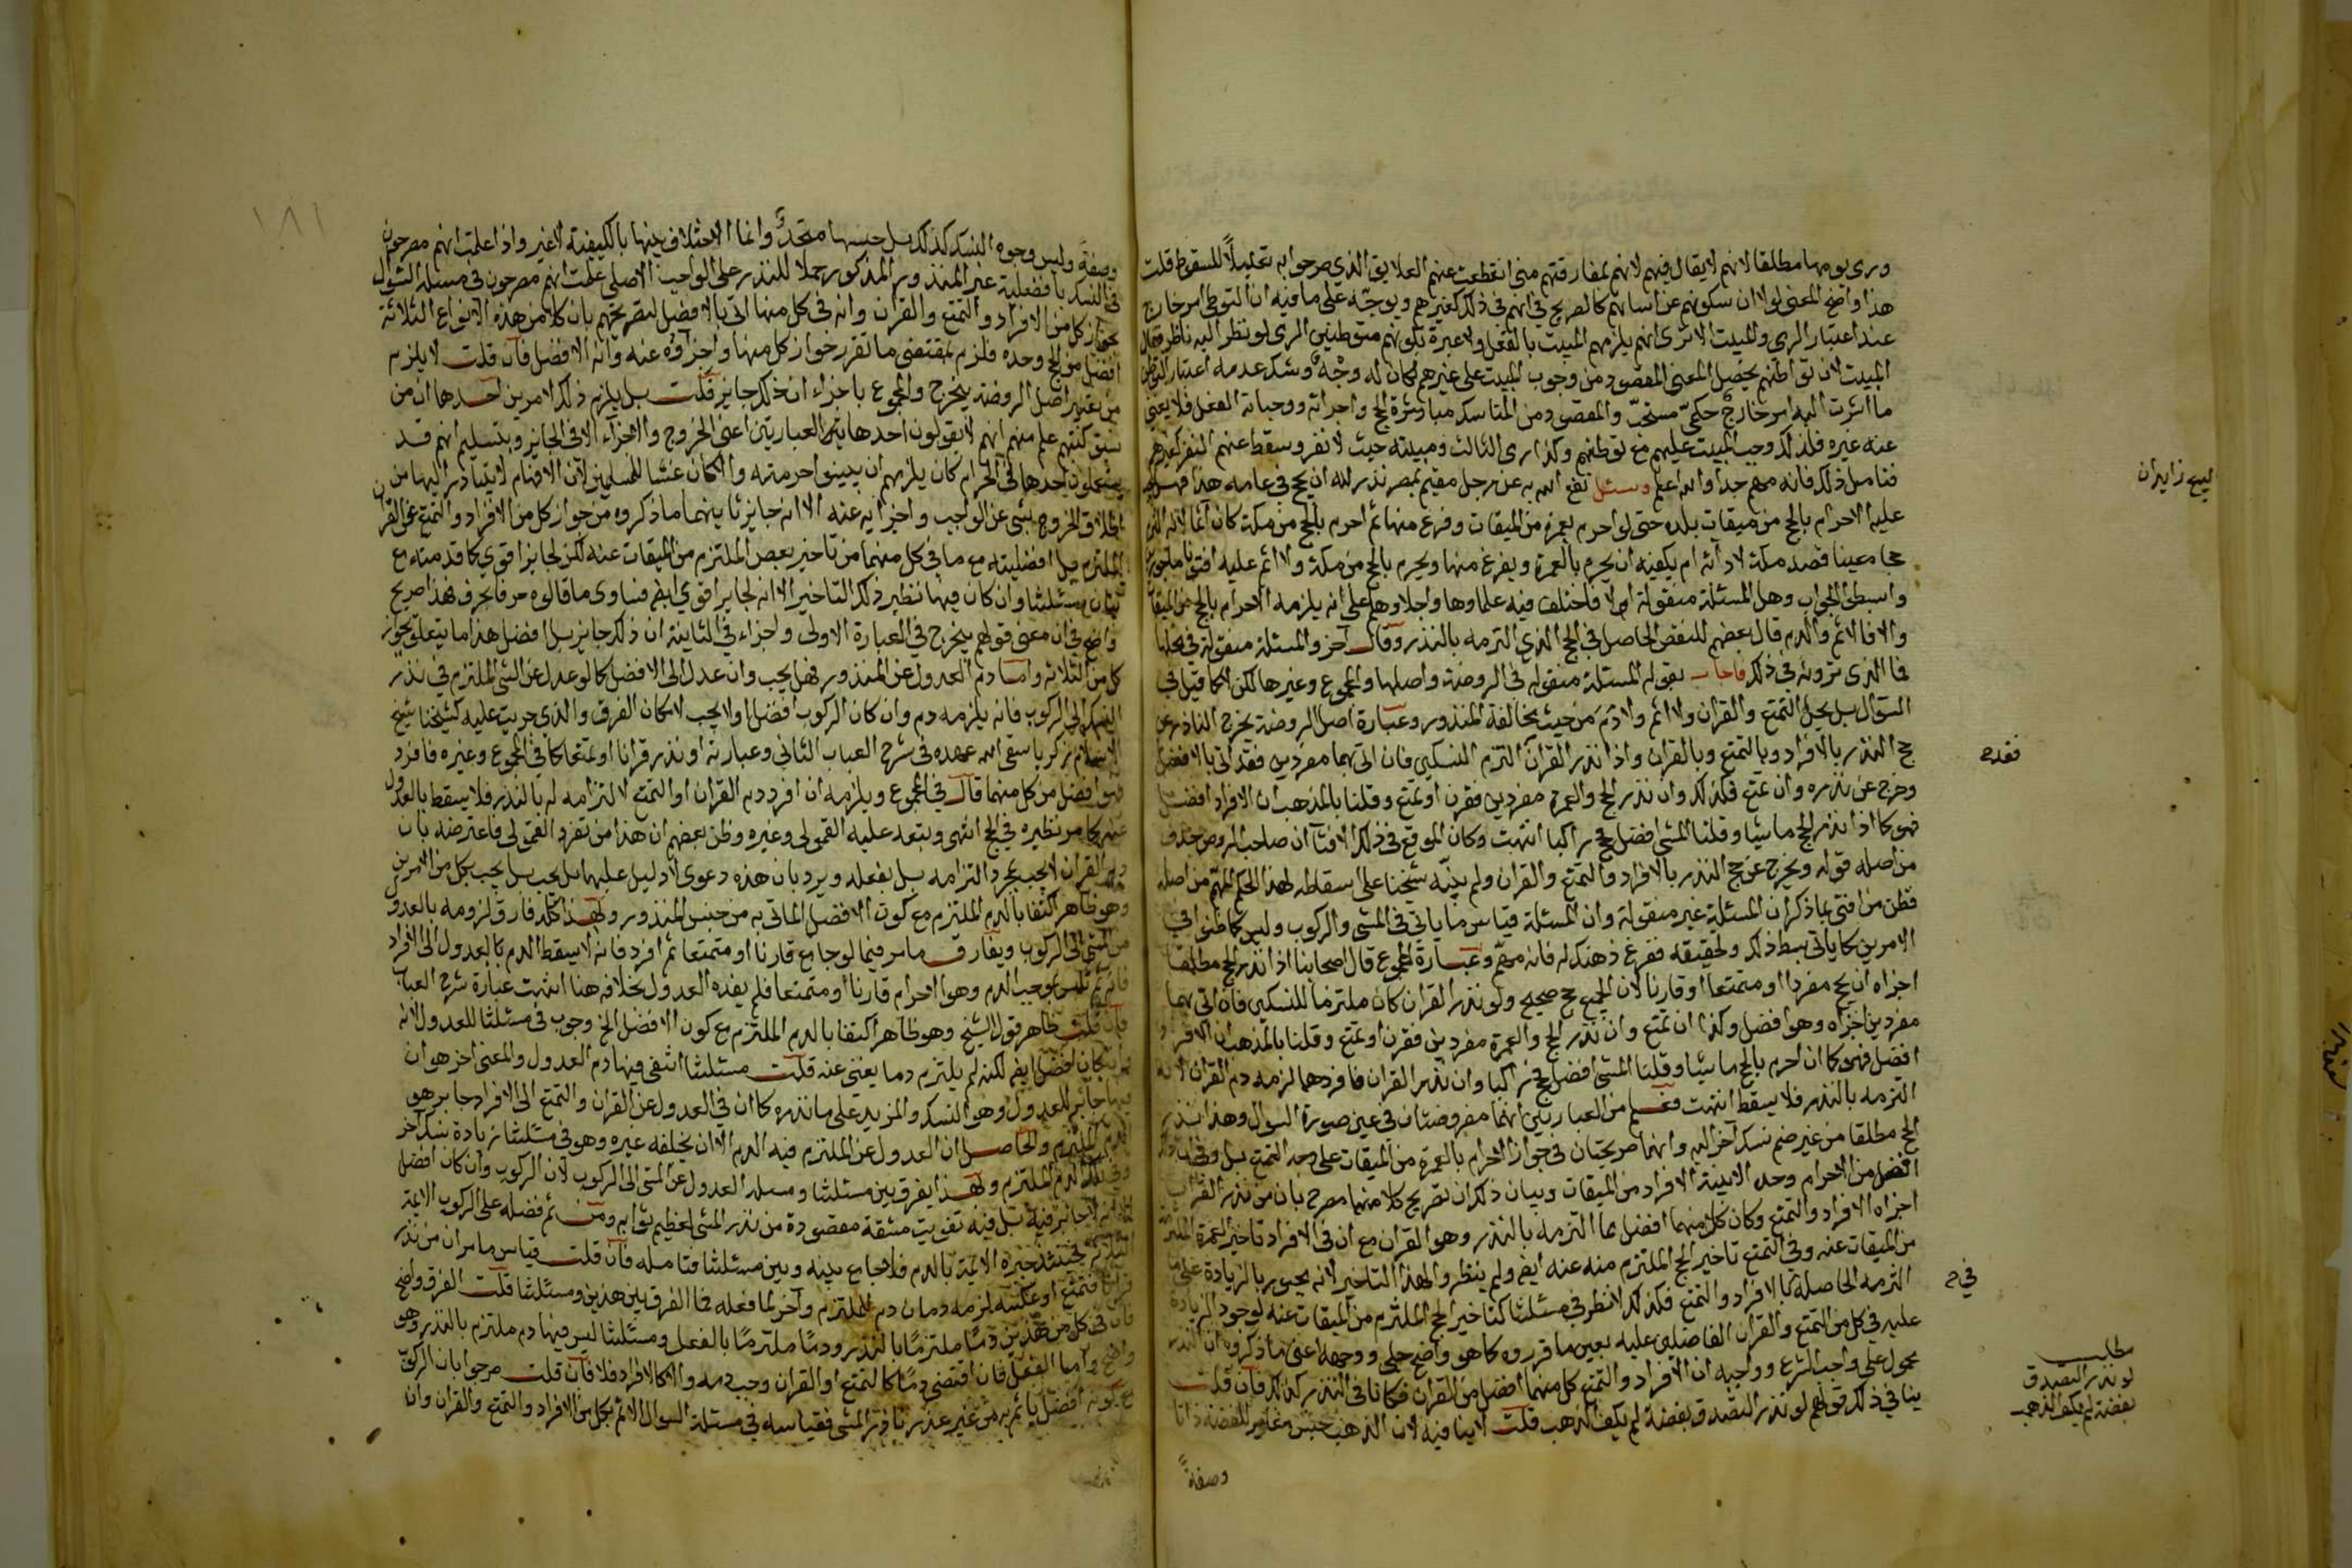 ورمى يومها مطلقا لانهم لا يقال فيهم لانهم بمفارقتهم منى انقطعت عنهم العلايق الذي صرحوا به تعليلاً للسقوط قلت
هذا واضح المعنى لولا ان سكوتهم عن اساتهم كالصريح في انهم في ذلك كغيرهم ويوجّه على ما فيه ان التوطن امر خارج
عند اعتبار الرمي والمبيت الا ترى انهم يلزمهم المبيت بالفعل ولا عبرة بكونهم متوطنين الرمي لو نظر اليه ناظر فقال
المبيت لان تواطنهم يحصل المعنى المقصود من وجوب المبيت على غيرهم لكان له وجْهٌ ويشكل عدمه اعتبار التوطن
ما اشرت اليه امر خارج حكميّ مستحبّ والمقصود من المناسك مباشرة الحج واجزائه ووجباته الفعل فلا يغني
عنه غيره فلذلك وجب المبيت عليهم مع توطنهم وكذا رمي الثالث ومبيلته حيث لا نفر وسقط عنهم النفر كغيرهم
فتامل ذلك فانه مهم جدا والله اعلم وسئل نفع الله به عن رجل مقيم بمصر نذر لله ان يحج في عامه هذا فهل
عليه الاحرام بالحج من ميقات بلده حتى لو احرم بعمرة من الميقات وفرغ منها ثم احرم بالحج من مكة كان آثما لانه التزم
حجا معينا قصد مكة لادائه ام يكفيه ان يحرم بالعمرة ويفرغ منها ويحرم بالحج من مكة ولا اثم عليه افتونا ماجورين
وابسطوا الجواب وهل المسئلة منقولة ام لا فاختلف فيه علماوها واجلاوهم على انه يلزمه الاحرام بالحج من الميقات
والا فالاثم والدم قال بعضهم للنقص الحاصل في الحج الذي التزمه بالنذر وقال آخر والمسئلة منقولة في محلها
فما الذي ترونه في ذلك فاجاب بقوله المسئلة منقولة في الروضة واصلها والمجموع وغيرها لكن لا كما قيل في
السؤال بل يحل التمتع والقران ولا اثم ولا دم من حيث مخالفة المنذور وعبارة اصل الروضة يخرج الناذر عن
حج النذر بالافراد وبالتمتع وبالقران واذا نذر القران التزم النسكين فان اتى بهما مفردين فقد اتى بالافضل
وخرج عن نذره وان تمتع فكذلك وان نذر الحج والعمرة مفردين فقرن او تمتع وقلنا بالمذهب ان الافراد افضل
فهو كما اذا نذر الحج ماشيا وقلنا المشي افضل فحج راكبا انتهت وكان الموقع في ذلك الافتآ ان صاحب الروض حذف
من اصله قوله ويخرج عن حج النذر بالافراد والتمتع والقران ولم ينبّه شيخنا على اسقاطه لهذا الحكم المهم من اصله
فظن من افتى بما ذكر ان المسئلة غير منقولة وان المسئلة قياس ما ياتي في المشي والركوب وليس كما ظنوا في
الامرين كما ياتي بسط ذلك وتحقيقه ففرغ ذهنك له فانه مهم وعبارة المجموع قال اصحابنا اذا نذر الحج مطلقا
اجزاه ان يحج مفردا او متمتعا او قارنا لان الجميع حج صحيح ولو نذر القران كان ملتزما للنسكين فان اتى بهما
مفردين اجزاه وهو افضل وكذا ان تمتع وان نذر الحج والعمرة مفردين فقرن او تمتع وقلنا بالمذهب ان الافراد
افضل فهو كما ان احرم بالحج ماشيا وقلنا المشي افضل فحج راكبا وان نذر القران فافردهما لزمه دم القران لانه
التزمه بالنذر فلا يسقط انتهت فعلم من العبارتين انهما مفروضتان في عين صورة السؤال وهذا نذر
الحج مطلقا من غير ضم نسك آخر اليه وانهما صريحتان في جواز الاحرام بالعمرة من الميقات على وجه التمتع بل وفي انه
افضل من الاحرام وحده الا بنية الافراد من الميقات وبيان ذلك ان تصريح كلا منهما مصرح بان من نذر القران
اجزاه الافراد والتمتع وكان كلا منهما افضل مما التزمه بالنذر وهو القران مع ان في الافراد تاخير العمرة الملتزمة
من الميقات عنه وفي التمتع تاخير الحج الملتزم منه عنه ايضا ولم ينظروا لهذا التاخير لانه مجبور بالزيادة على ما
التزمه الحاصلة بالافراد والتمتع فكذلك لا نظر في مسئلتنا كتاخير الحج الملتزم من الميقات عنه لوجود الزيادة
عليه في كل من التمتع والقران الفاضلين عليه بعين ما قرروه كما هو واضح جلي ووجهه اعني ما ذكروه ان النذر
محمول على واجب الشرع وواجبه ان الافراد والتمتع كل منهما افضل من القران فكانا في النذر كذلك فان قلت
ينافي ذلك قولهم لو نذر التصدق بفضة لم يكف الذهب قلت لا ينافيه لان الذهب جنس مغاير للفضة ذاتا
وصفةً
ليبيع زايران
فقدح
في ح
مطلب
لو نذر التصدق
بفضة لم يكف الذهب
١٨١
وصفةً وليس وجوه النسك كذلك بل جنسها متحدٌ وانما الاختلاف بينها بالكيفية لا غير واذا علمت انهم مصرحون
في النسك بافضلية غير المنذور المذكور حملا للنذر على الواجب الاصلي علمت انهم مصرحون في مسئلة السؤال
بجواز كل من الافراد والتمتع والقران وانه في كل منها اتى بالافضل لتصريحهم بان كلا من هذه الانواع الثلاثة
افضل من الحج وحده فلزم بمقتضى ما تقرر جواز كل منها واجزاؤه عنه وانه الافضل فان قلت لا يلزم
من تعبير اصل الروضة بيخرج والمجموع باجزاء ان ذلك جايز قلت بل يلزم ذلك لامرين احدهما ان من
سبق كتبهم علم منهم انهم لا يقولون احد هاتين العبارتين اعني الخروج والاجزآء الا في الجايز وبتسليم انهم قد
يستعملون احدها في الحرام كان يلزمهم ان يبينوا حرمته والا كان غشا للمسلمين لان الافهام لا يتبادر اليها من
اطلاق الخروج بشي عن الواجب واجزايه عنه الا انه جايز ثانيهما ما ذكروه من جواز كل من الافراد والتمتع عن القران
الملتزم بل افضليته مع ما في كل منهما من تاخير بعض الملتزم من الميقات عنه لكن لجابر اقوي كما قدمته مع
بيان مسئلتنا وان كان فيها نظير ذلك التاخير الا انه لجابر اقوي ايضا فتساوى ما قالوه حرفا بحرف فهذا صريح
واضح في ان معنى قولهم يخرج في العبارة الاولى واجزاء في الثانية ان ذلك جايز بل افضل هذا ما يتعلق بجواز
كل من الثلاثة واما دم العدول عن المنذور فهل يجب وان عدل الى الافضل كما لو عدل عن المشي الملتزم في نذر
النسك الى الركوب فانه يلزمه دم وان كان الركوب افضل او لا يجب لامكان الفرق والذي جريت عليه كشيخنا شيخ
الاسلام زكريا سقى الله عهده في شرح العباب الثاني وعبارته او نذر قرانا او تمتعا كما في المجموع وغيره فافرد
فهو افضل من كل منهما قال في المجموع ويلزمه ان افرد دم القران او التمتع لالتزامه له بالنذر فلا يسقط بالعدول
عنه كما مر نظيره في الحج انتهى وتبعه عليه القمولي وغيره وظن بعضهم ان هذا من تفرد القمولي فاعترضه بان
دم القران لا يجب بمجرد التزامه بل بفعله ويرد بان هذه دعوى لا دليل عليها بل يجب بكل من الامرين
وهو ظاهر اكتفا بالدم الملتزم مع كون الافضل الماتي به من جنس المنذور ولهذا كله فارق لزومه بالعدول
من المشي الى الركوب ويفارق ما مر فيما لو جامع قارنا او متمتعا ثم افرد فانه لا يسقط الدم بالعدول الى الافراد
فانه ثم تلبس بموجب الدم وهو احرام قارنا او متمتعا فلم يفده العدول بخلافه هنا انتهت عبارة شرح العباب
فان قلت ظاهر قول الشيخ وهو ظاهر اكتفا بالدم الملتزم مع كون الافضل الخ وجوب في مسئلتنا للعدول لانه
وان كان افضل ايضا لكنه لم يلتزم دما يغني عنه قلت مسئلتنا انتفى فيها دم العدول والمعنى اخر هو ان
فيها جابر للعدول وهو النسك والمزيد على ما نذره كما ان في العدول عن القران والتمتع الى الافراد جابر هو
الدم الملتزم والحاصل ان العدول عن الملتزم فيه الدم الا ان يخلفه غيره وهو في مسئلتنا زيادة نسك آخر
وفي تلك الدم الملتزم ولهذا يفرق بين مسئلتنا ومسئلة العدول عن المشي الى الركوب لان الركوب وان كان افضل
لكنه لا جابر فيه بل فيه تفويت مشقة مقصودة من نذر المشي لعظيم ثوابه ومن ثم فضله على الركوب الايمة
الثلاثة فحينئذ خيره الايمة بالدم فلا جامع بينه وبين مسئلتنا فتامله فان قلت قياس ما مر ان من نذر
قرانا فتمتع او عكسه لزمه دمان دم للملتزم وآخر لما فعله فما الفرق بين هذين ومسئلتنا قلت الفرق واضح
فان في كل من هذين دمًا ملتزمًا بالنذر ودمًا ملتزمًا بالفعل ومسئلتنا ليس فيها دم ملتزم بالنذر وهو
واضح واما الفعل فان اقتضى دمًا كالتمتع او القران وجب دمه والا كالافراد فلا فان قلت صرحوا بان الركوب
مع كونه افضل ياثم به من غير عذر ناذر المشي فقياسه في مسئلة السؤال الاثم بكل من الافراد والتمتع والقران وان